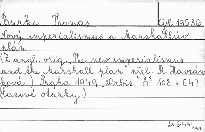 Burke Thomas Cyd 13586
Nový imperialismus a Marshallův
plán
(Z angl. orig. The new imperialism
and the Marshall plan přel. H.
Praha 1949, Orbis. 8° 108 + [4]
(Časové otázky.)